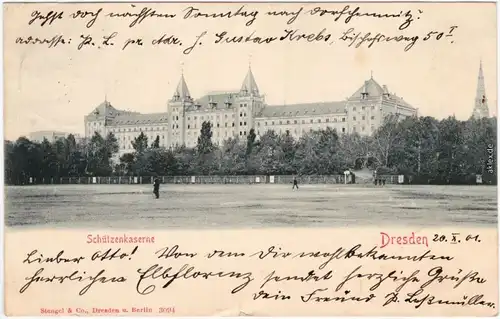 Gehst Du doch nächsten Sonntag nach Dorfchemnitz?
Adresse: H. L. pr. Adr. J. Gustav Krebs, Bischofsweg 50 I
Schützenkaserne
Dresden 20. X. 01.
Lieber Otto! Von dem Dir wohlbekannten
herrlichen Elbflorenz sendet herzliche Grüße
Dein Freund
Stengel & Co., Dresden u. Berlin 3694